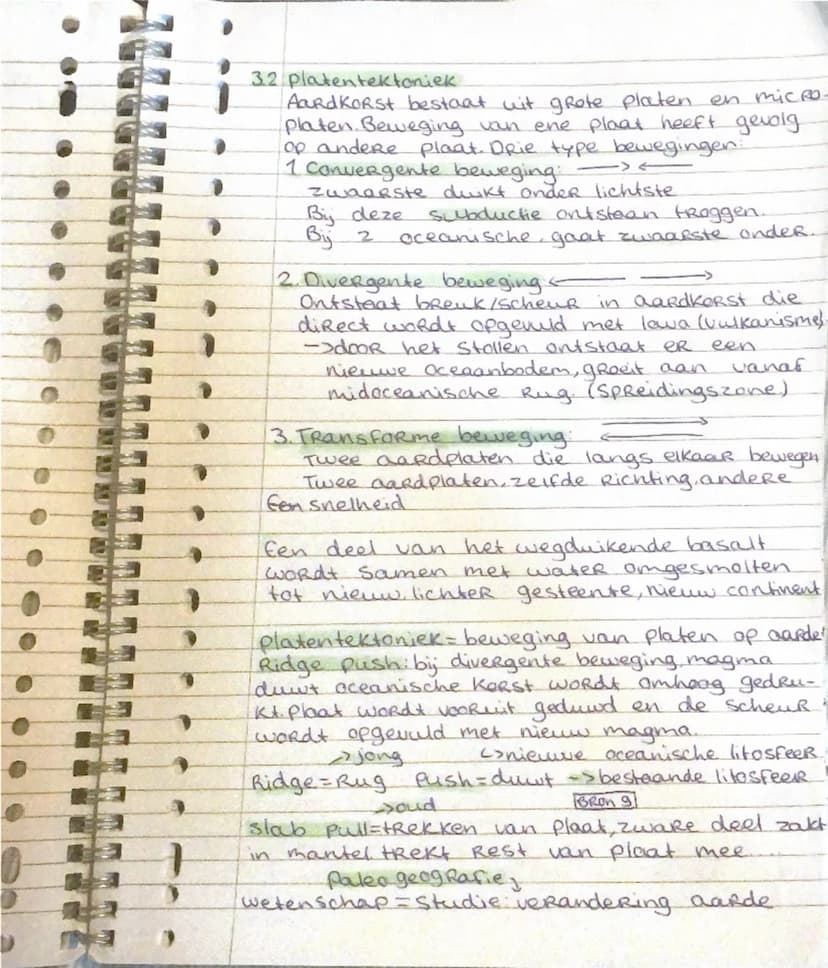 3.2 Platentektoniek
Aardkorst bestaat uit grote platen en micro-
platen. Beweging van ene plaat heeft gevolg
op andere plaat. Drie type bewegingen:
1 Convergente beweging: → ←
zwaarste duikt onder lichtste
Bij deze subductie ontstaan troggen.
Bij 2 oceanische, gaat zwaarste onder.
2. Divergente beweging ← →
Ontstaat breuk/scheur in aardkorst die
direct wordt opgevuld met lava (vulkanisme)
→ door het stollen ontstaat er een
nieuwe oceaanbodem, groeit aan vanaf
midoceanische rug. (spreidingszone)
3. Transforme beweging: → ←
Twee aardplaten die langs elkaar bewegen
Twee aardplaten, zelfde richting, andere
Een snelheid
Een deel van het wegduikende basalt
wordt samen met water omgesmolten
tot nieuw, lichter gesteente, nieuw continent
Platentektoniek = beweging van platen op aarde
Ridge push: bij divergente beweging, magma
duwt oceanische korst wordt omhoog gedru-
kt. Plaat wordt vooruit geduwd en de scheur
wordt opgevuld met nieuw magma.
→ jong ↳ nieuwe oceanische litosfeer
Ridge = Rug Push = duwt → bestaande litosfeer
→ oud Bron 9
slab pull = trekken van plaat, zware deel zakt
in mantel trekt rest van plaat mee....
Paleogeografie
wetenschap = studie: verandering aarde